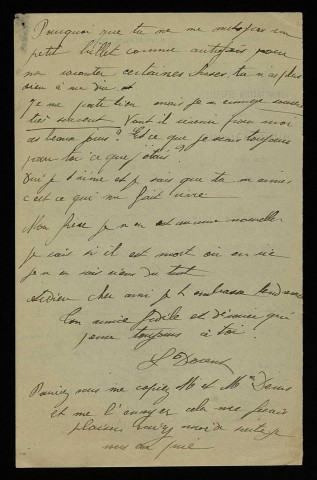 Pourquoi que tu ne me mets pas un
petit billet comme autrefois pour
me raconter certaines choses tu n'as plus
rien à me dire
Je me porte bien mais je m'ennuie
très souvent Vont il revenir pour moi
ces beaux jours? Est ce que je serais toujours
pour toi ce que j'étais?
Oui je t'aime et je sais que tu m'aimes
c'est ce qui me fait vivre
Mon frere je n'en ai aucune nouvelle
je sais si il est mort ou en vie
je n'en sais rien du tout
Adieu cher ami je t'embrasse tendrement
Ton amie fidèle et dévouée qui
pense toujours à toi
Pouvez vous me copier Mr et Mme
et me l'envoyer cela me ferait
plaisir